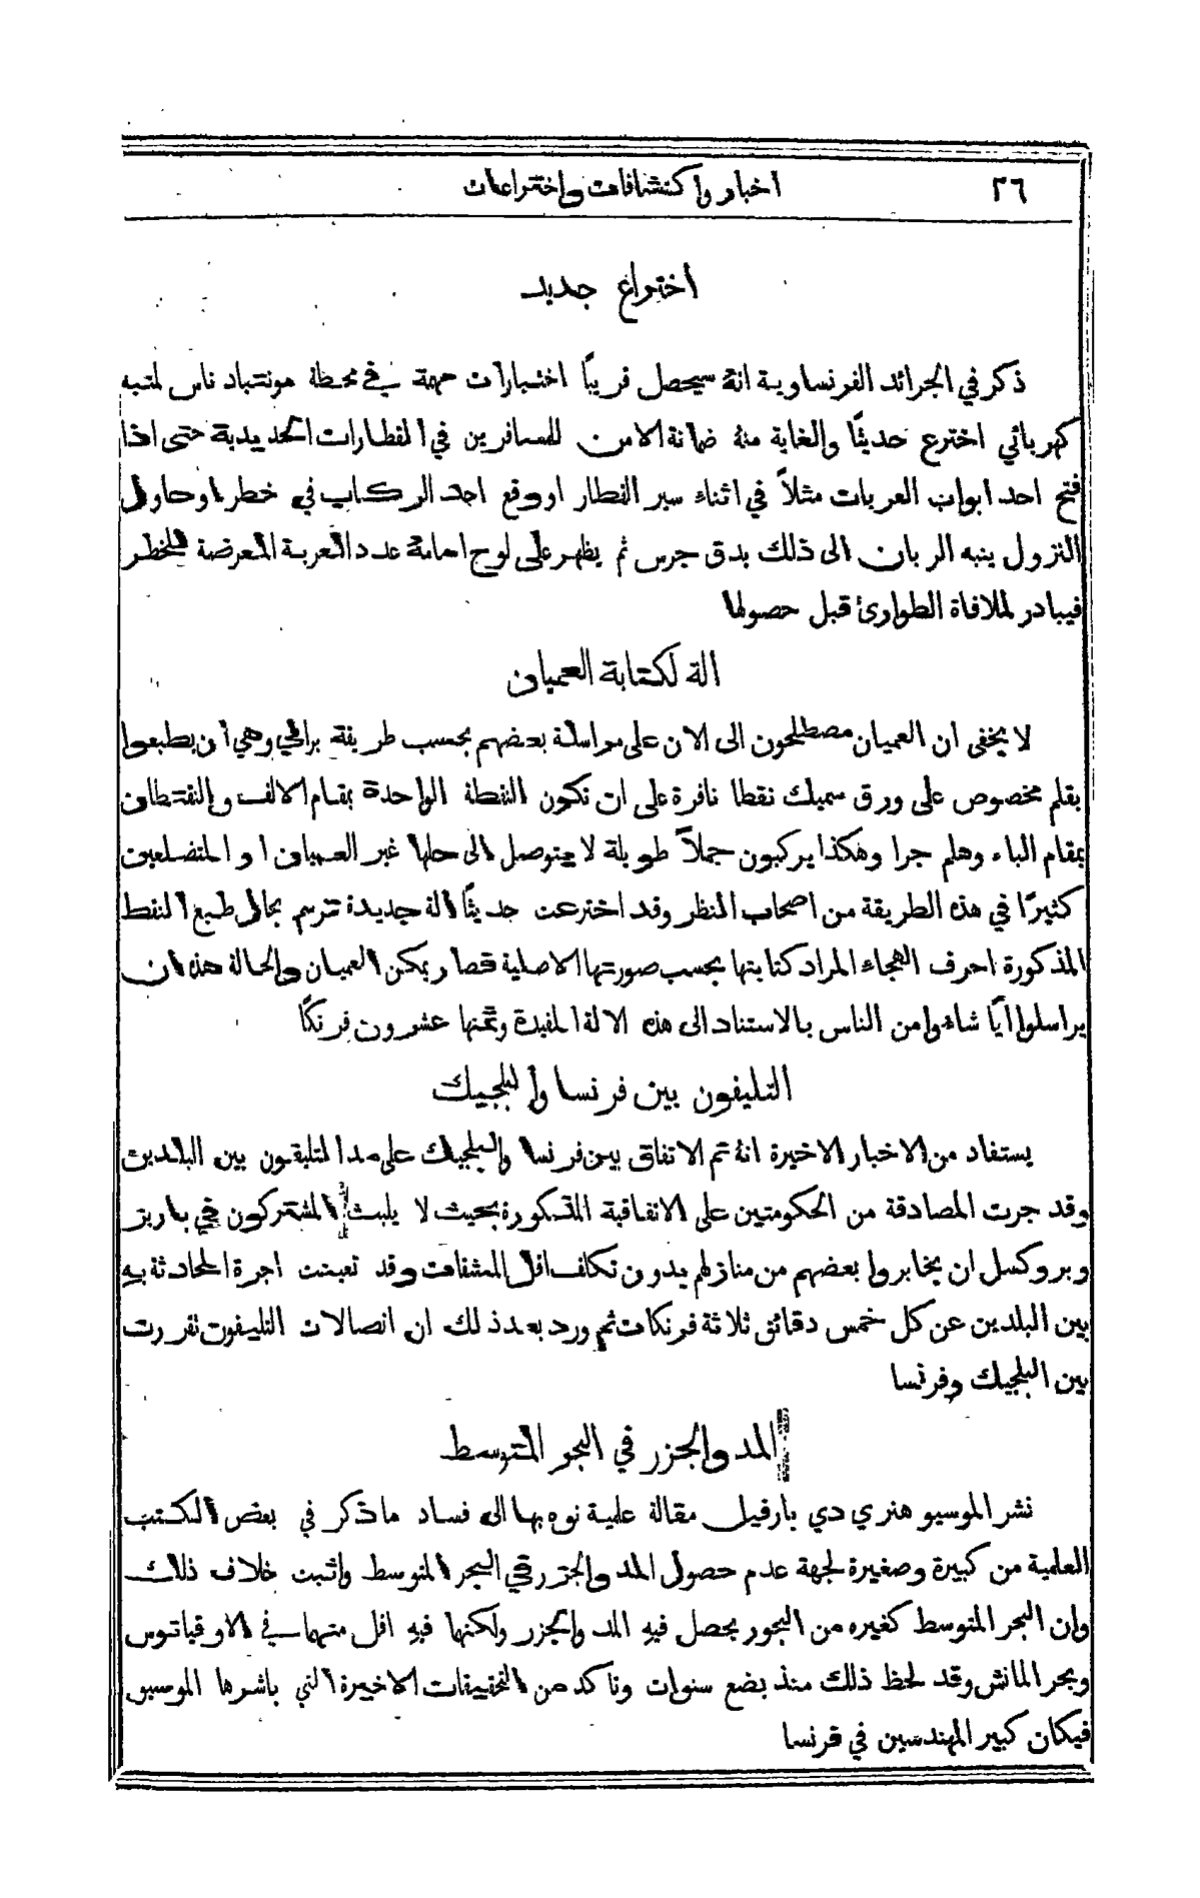 ٢٦
اخبار واكتشافات واختراعات
اختراع جديد
ذكر في الجرائد الفرنساوية انهُ سيحصل قريبًا اختبارات مهمة في محطة مونتبارناس لمنبه
كهربائي اخترع حديثًا والغاية منهُ ضمانة الامن للمسافرين في القطارات الحديدية حتى اذا
فتح احد ابواب العربات مثلاً في اثناء سير القطار او وقع احد الركاب في خطر او حاول
النزول ينبه الربان الى ذلك بدق جرس ثم يظهر على لوح امامهُ عدد العربة المعرضة للخطر
فيبادر لملافاة الطوارئ قبل حصولها
الة لكتابة العميان
لا يخفى ان العميان مصطلحون الى الان على مراسلة بعضهم بحسب طريقة براي وهي أن يطبعوا
بقلم مخصوص على ورق سميك نقطا نافرة على ان تكون النقطة الواحدة بمقام الالف والنقطتان
بمقام الباء وهلم جرا وهكذا يركبون جملاً طويلة لا يتوصل الى حلها غير العميان او المتضلعين
كثيرًا في هذه الطريقة من اصحاب النظر وقد اخترعت حديثًا الة جديدة ترسم بحال طبع النقط
المذكورة احرف الهجاء المراد كتابتها بحسب صورتها الاصلية فصار يمكن العميان والحالة هذه ان
يراسلوا ايًا شاءوا من الناس بالاستناد الى هذه الالة المفيدة وثمنها عشرون فرنكًا
التليفون بين فرنسا والبلجيك
يستفاد من الاخبار الاخيرة انهُ تم الاتفاق بين فرنسا والبلجيك على مد التليفون بين البلدين
وقد جرت المصادقة من الحكومتين على الاتفاقية المذكورة بحيث لا يلبث المشتركون في باريز
وبروكسل ان يخابروا بعضهم من منازلهم بدون تكلف اقل المشقات وقد تعينت اجرة المحادثة به
بين البلدين عن كل خمس دقائق ثلاثة فرنكات ثم ورد بعد ذلك ان اتصالات التليفون تقررت
بين البلجيك وفرنسا
المد والجزر في البحر المتوسط
نشر الموسيو هنري دي بارفيل مقالة علمية نوه بها الى فساد ما ذكر في بعض الكتب
العلمية من كبيرة وصغيرة لجهة عدم حصول المد والجزر في البحر المتوسط واثبت خلاف ذلك
وان البحر المتوسط كغيره من البحور يحصل فيه المد والجزر ولكنها فيه اقل منهما في الاوقيانوس
وبحر المانش وقد لحظ ذلك منذ بضع سنوات وتاكد من التحقيقات الاخيرة التي باشرها الموسيو
فيكان كبير المهندسين في فرنسا